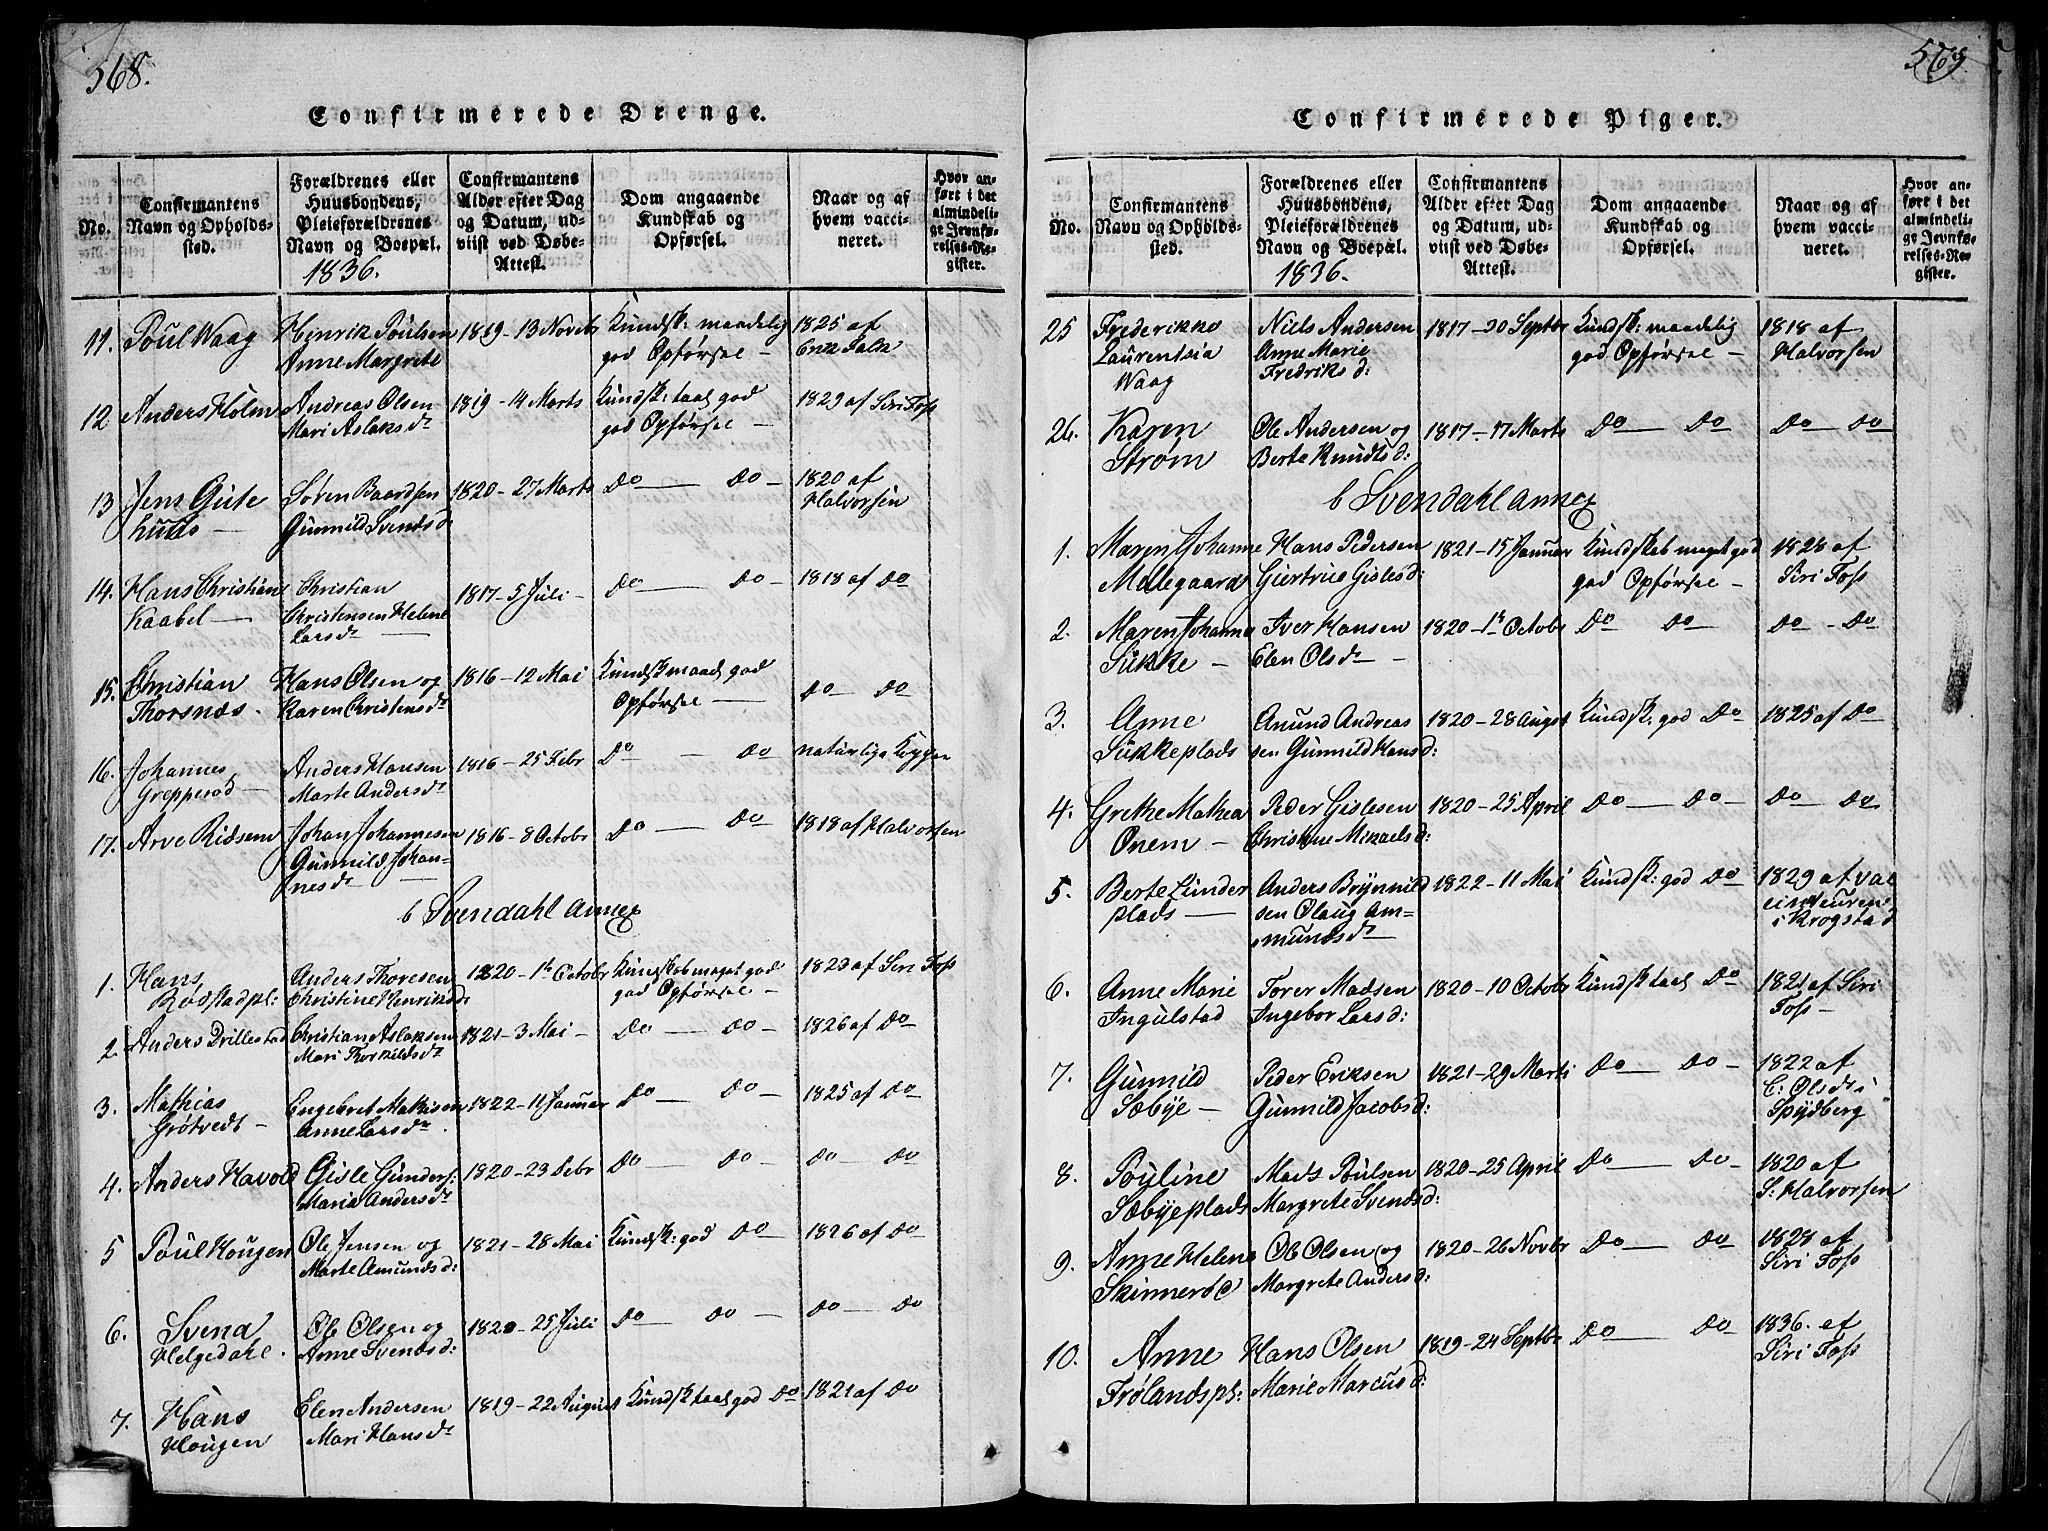 568.
Confirmerede Drenge.
No.
Confirmantens
Navn og Opholds-
sted.
Forældrenes eller
Huusbondens,
Pleieforældrenes
Navn og Boepæl.
1836.
Confirmantens
Alder efter Dag
og Datum, ud-
viist ved Døbe-
Attest.
Dom angaaende
Kundskab og
Opførsel.
Naar og af
hvem vacci-
neret.
Hvor an-
ført i det
almindeli-
ge Jevnfø-
relses-Re-
gister.
11. Poul Waag Henrik Poulsen 1819-13 Novebr Kundsk: maadelig 1825 af
Anne Margrete god Opførsel — Erik Falk
12 Anders Holm Andreas Olsen 1819-14 Marts Kundsk: taal god 1829 af Siri Foss
Mari Aslaksdr god Opførsel —
13 Jens Gute Søren Baardsen 1820-27 Marts Do — Do — 1820 af
Gunnild Svendsd: Halvorsen
14. Hans Christian Christian 1817-5 Juli — Do — Do — 1818 af Do
Kaabel — Christensen Helene
Larsdr
15. Christian Hans Olsen og 1816-12 Mai Kundsk maad god Do Do
Thorsnæs. Karen Christensdr Opførsel —
16. Johannes Anders Hansen 1816-25 Febr Do — Do naturlige Kopper
Greppesød — Marte Andersdr
17. Arve Ridsem Johan Johannesen 1816-8 Octobr Do — Do 1818 af Halvorsen
Gunnild Johan-
nesdr —
b Svendahl Annex
1. Hans Anders Thoresen 1820-1te Octobr Kundskab meget god 1823 af Siri Foss
Rødstadpl: Christine Henriksd: god Opførsel —
2. Anders Drillestad Christian Aslaksen 1821-3 Mai — Do — Do — 1826 af Do
Mari Thorkildsdr
3. Mathias Engebret Mathisen 1822-11 Januar Do — Do — 1825 af Do
Grøtvedt — Anne Larsdr
4. Anders Havold Gisle Gunders: 1820-23 Febr Do — Do — Do Do
Maria Andersdr
5 Poul Hougen Ole Jensen og 1821-28 Mai Kundsk: god Do 1826 af Do
Marte Amundsd:
6. Svend Ole Olsen og 1820-25 Juli Do — Do — Do — Do
Helgedahl. Anne Svendsd:
7. Hans Elen Andersen 1819-22 August Kundsk taal god Do 1821 af Do
Hougen Mari Hansdr
569.
Confirmerede Piger.
No.
Confirmantens
Navn og Opholds-
sted.
Forældrenes eller
Huusbondens,
Pleieforældrenes
Navn og Boepæl.
1836.
Confirmantens
Alder efter Dag
og Datum, ud-
viist ved Døbe-
Attest.
Dom angaaende
Kundskab og
Opførsel.
Naar og af
hvem vacci-
neret.
Hvor an-
ført i det
almindeli-
ge Jevnfø-
relses-Re-
gister.
25 Frederikke Niels Andersen 1817-20 Septbr Kundsk: maadelig 1818 af
Laurentsia Anne Marie god Opførsel — Halvorsen
Waag Fredriksd:
26. Karen Ole Andersen og 1817-17 Marts Do — Do Do Do
Strøm Berte Knudtsd:
b Svendahl Annex
1. Maren Johanne Hans Pedersen 1821-15 Januar Kundskab meget god 1828 af
Møllegaard Giertrue Gislesd: god Opførsel — Siri Foss
2. Maren Johanne Iver Hansen 1820-1te Octobr Do Do Do - Do
Sukke — Elen Olsdr —
3. Anne Anund Andreas 1820-28 August Kundsk: god Do 1825 af Do
Sukkeplads sen Gunnild Hansd:
4. Grethe Mathea Peder Gislesen 1820-25 April Do — Do — Do Do
Onem — Christine Mikaelsd:
5. Berte Lunder Anders Brynnild 1822-11 Mai Kundsk: god Do 1829 af vac
plads — sen Olaug Am- cinteuren
mundsdr i Krogstad
6. Anne Marie Torer Madsen 1820-10 Octobr Kundsk taal Do 1821 af Siri
Ingulstad Ingebor Larsd: Foss —
7. Gunnild Peder Eriksen 1821-29 Marts Do — Do — 1822 af
Sæbye — Gunnild Jacobsd: C: Olsdr i
Spydberg
8. Pouline Mads Poulsen 1820-25 April Do — Do — 1820 af
Sæbyeplads Margrete Svendsd: S: Halvorsen
9. Anne Helene Ole Olsen og 1820-26 Novbr Do — Do — 1828 af
Skinnerød Margrete Andersd: Siri Foss
10. Anne Hans Olsen 1819-24 Septbr Do — Do — 1836. af
Frølandspl: Marie Marcusd: Siri Foss